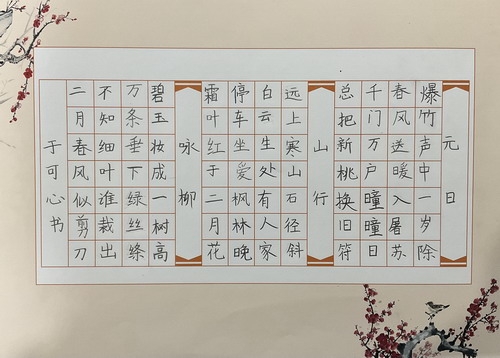 元日
爆竹声中一岁除
春风送暖入屠苏
千门万户曈曈日
总把新桃换旧符
山行
远上寒山石径斜
白云生处有人家
停车坐爱枫林晚
霜叶红于二月花
咏柳
碧玉妆成一树高
万条垂下绿丝绦
不知细叶谁裁出
二月春风似剪刀
于可心书